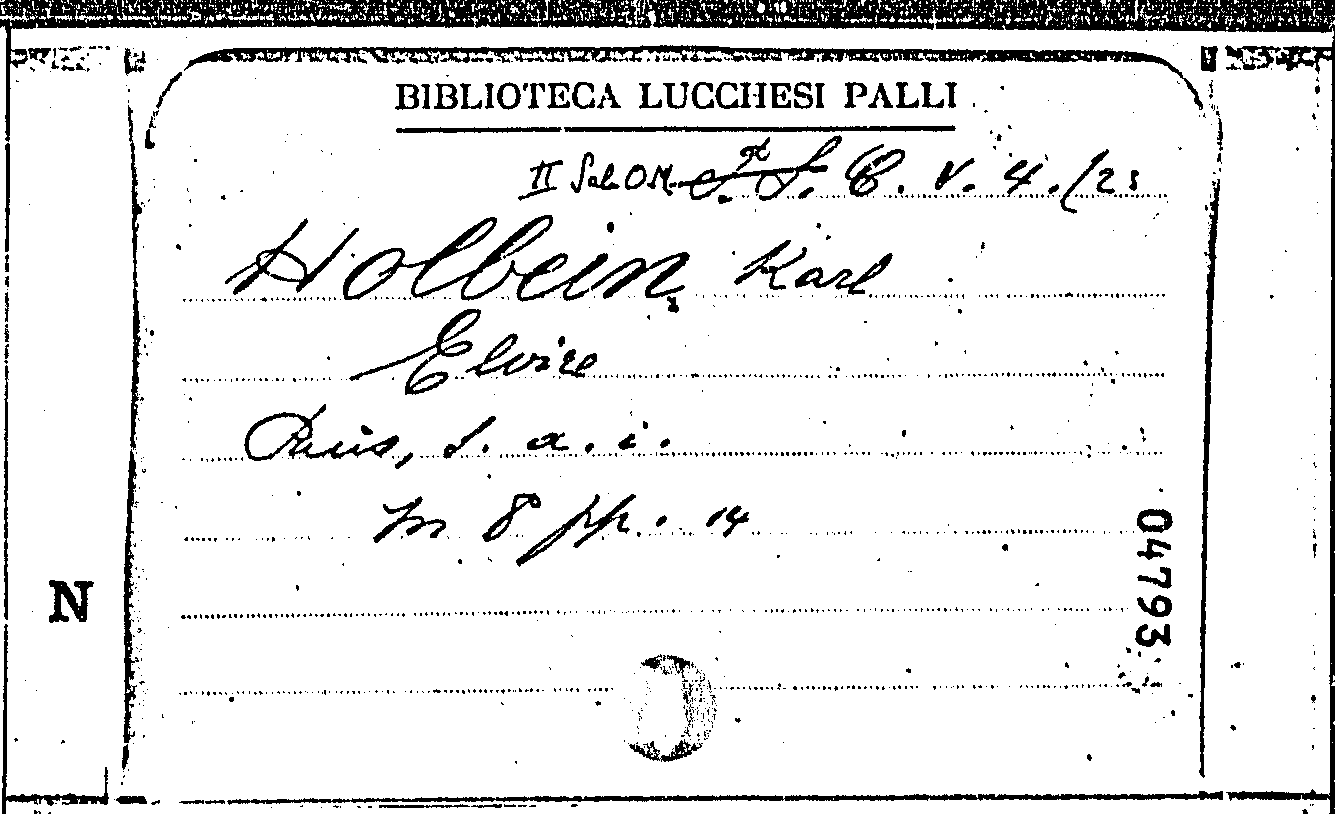 BIBLIOTECA LUCCHESI PALLI
II Sal. O.M. C. V. 4./23
Holbein, Karl
Elvire
s. a. i.
in 8° pp. 14
04793
N